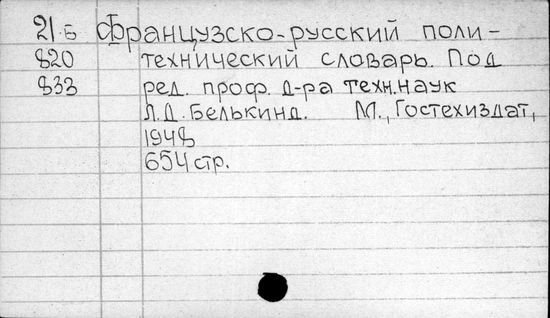 21-Б Французско-русский поли-
820 технический словарь. Под
833 ред. проф. д-ра техн. наук
Л.Д. Белькинд. М., Гостехиздат,
1948
654 стр.